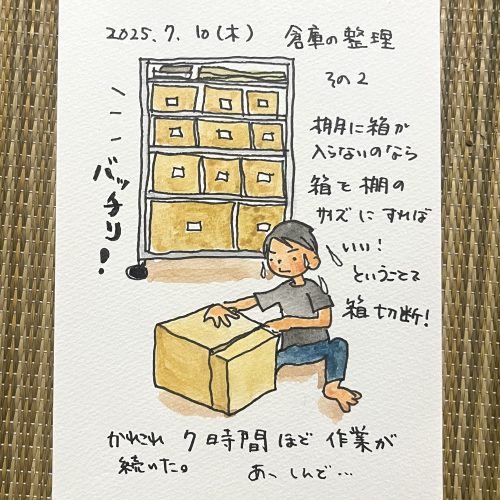 2025.7.10(木) 倉庫の整理
その2
バッチリ!
棚に箱が
入らないのなら
箱を棚の
サイズにすれば
いい!
ということで
箱切断!
かれこれ 7時間ほど作業が
続いた。 あ、しんど…